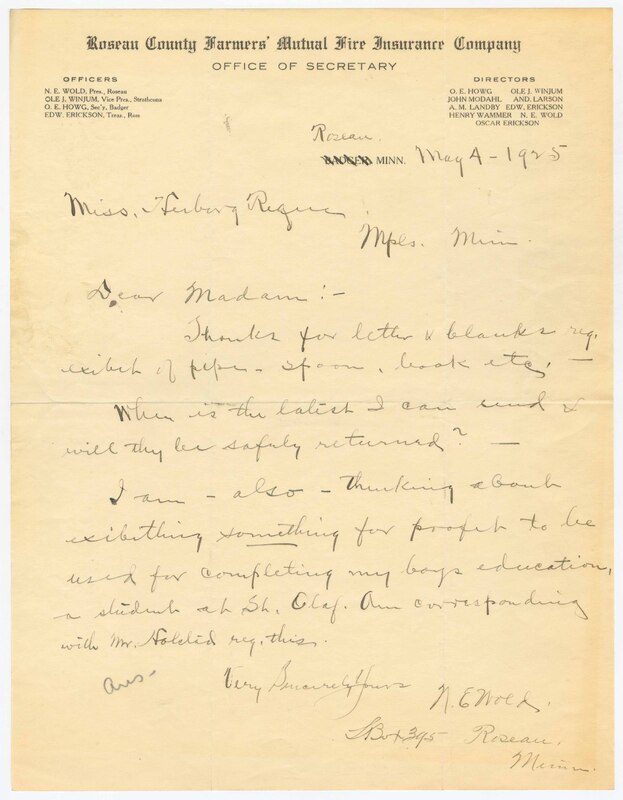 Roseau County Farmers' Mutual Fire Insurance Company
OFFICE OF SECRETARY
OFFICERS
N. E. WOLD, Pres., Roseau
OLE J. WINJUM, Vice Pres., Strathcona
O. E. HOWG, Sec'y, Badger
EDW. ERICKSON, Treas., Ross
DIRECTORS
O. E. HOWG OLE J. WINJUM
JOHN MODAHL AND. LARSON
A. M. LANDBY EDW. ERICKSON
HENRY WAMMER N. E. WOLD
OSCAR ERICKSON
Roseau.
BADGER, MINN. May 4 - 1925
Miss. Herborg Reque
Mpls. Minn.
Dear Madam:-
Thanks for letter & blanks reg.
exibit of pipe - spoon, book etc. -
When is the latest I can send &
will they be safely returned? -
I am - also - thinking about
exibithing something for profit to be
used for completing my boys education,
a student at St. Olaf. Am corresponding
with Mr. Holsted reg. this.
Very Sincerely Yours
Ans-
N. E. Wold,
Box 395 Roseau,
Minn.